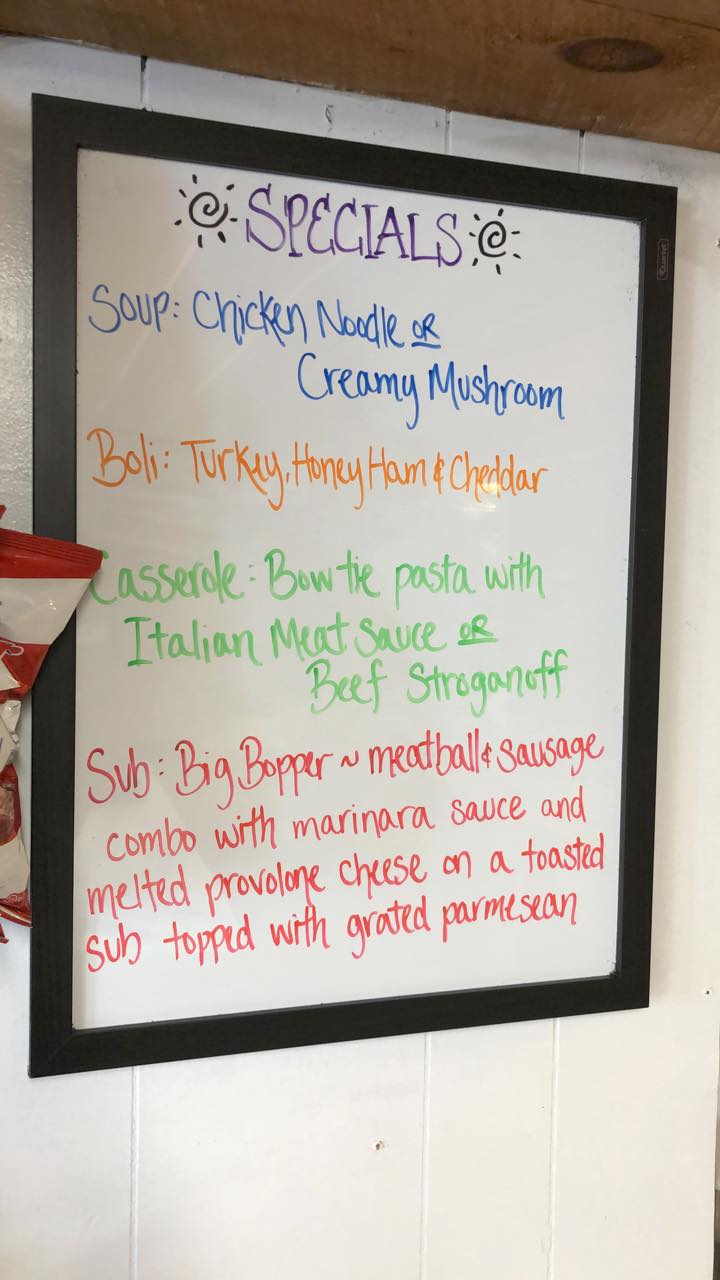 SPECIALS
Soup: Chicken Noodle OR
Creamy Mushroom
Boli: Turkey, Honey Ham & Cheddar
Casserole: Bow tie pasta with
Italian Meat Sauce OR
Beef Stroganoff
Sub: Big Bopper ~ meatball & sausage
combo with marinara sauce and
melted provolone cheese on a toasted
sub topped with grated parmesean
Quartet